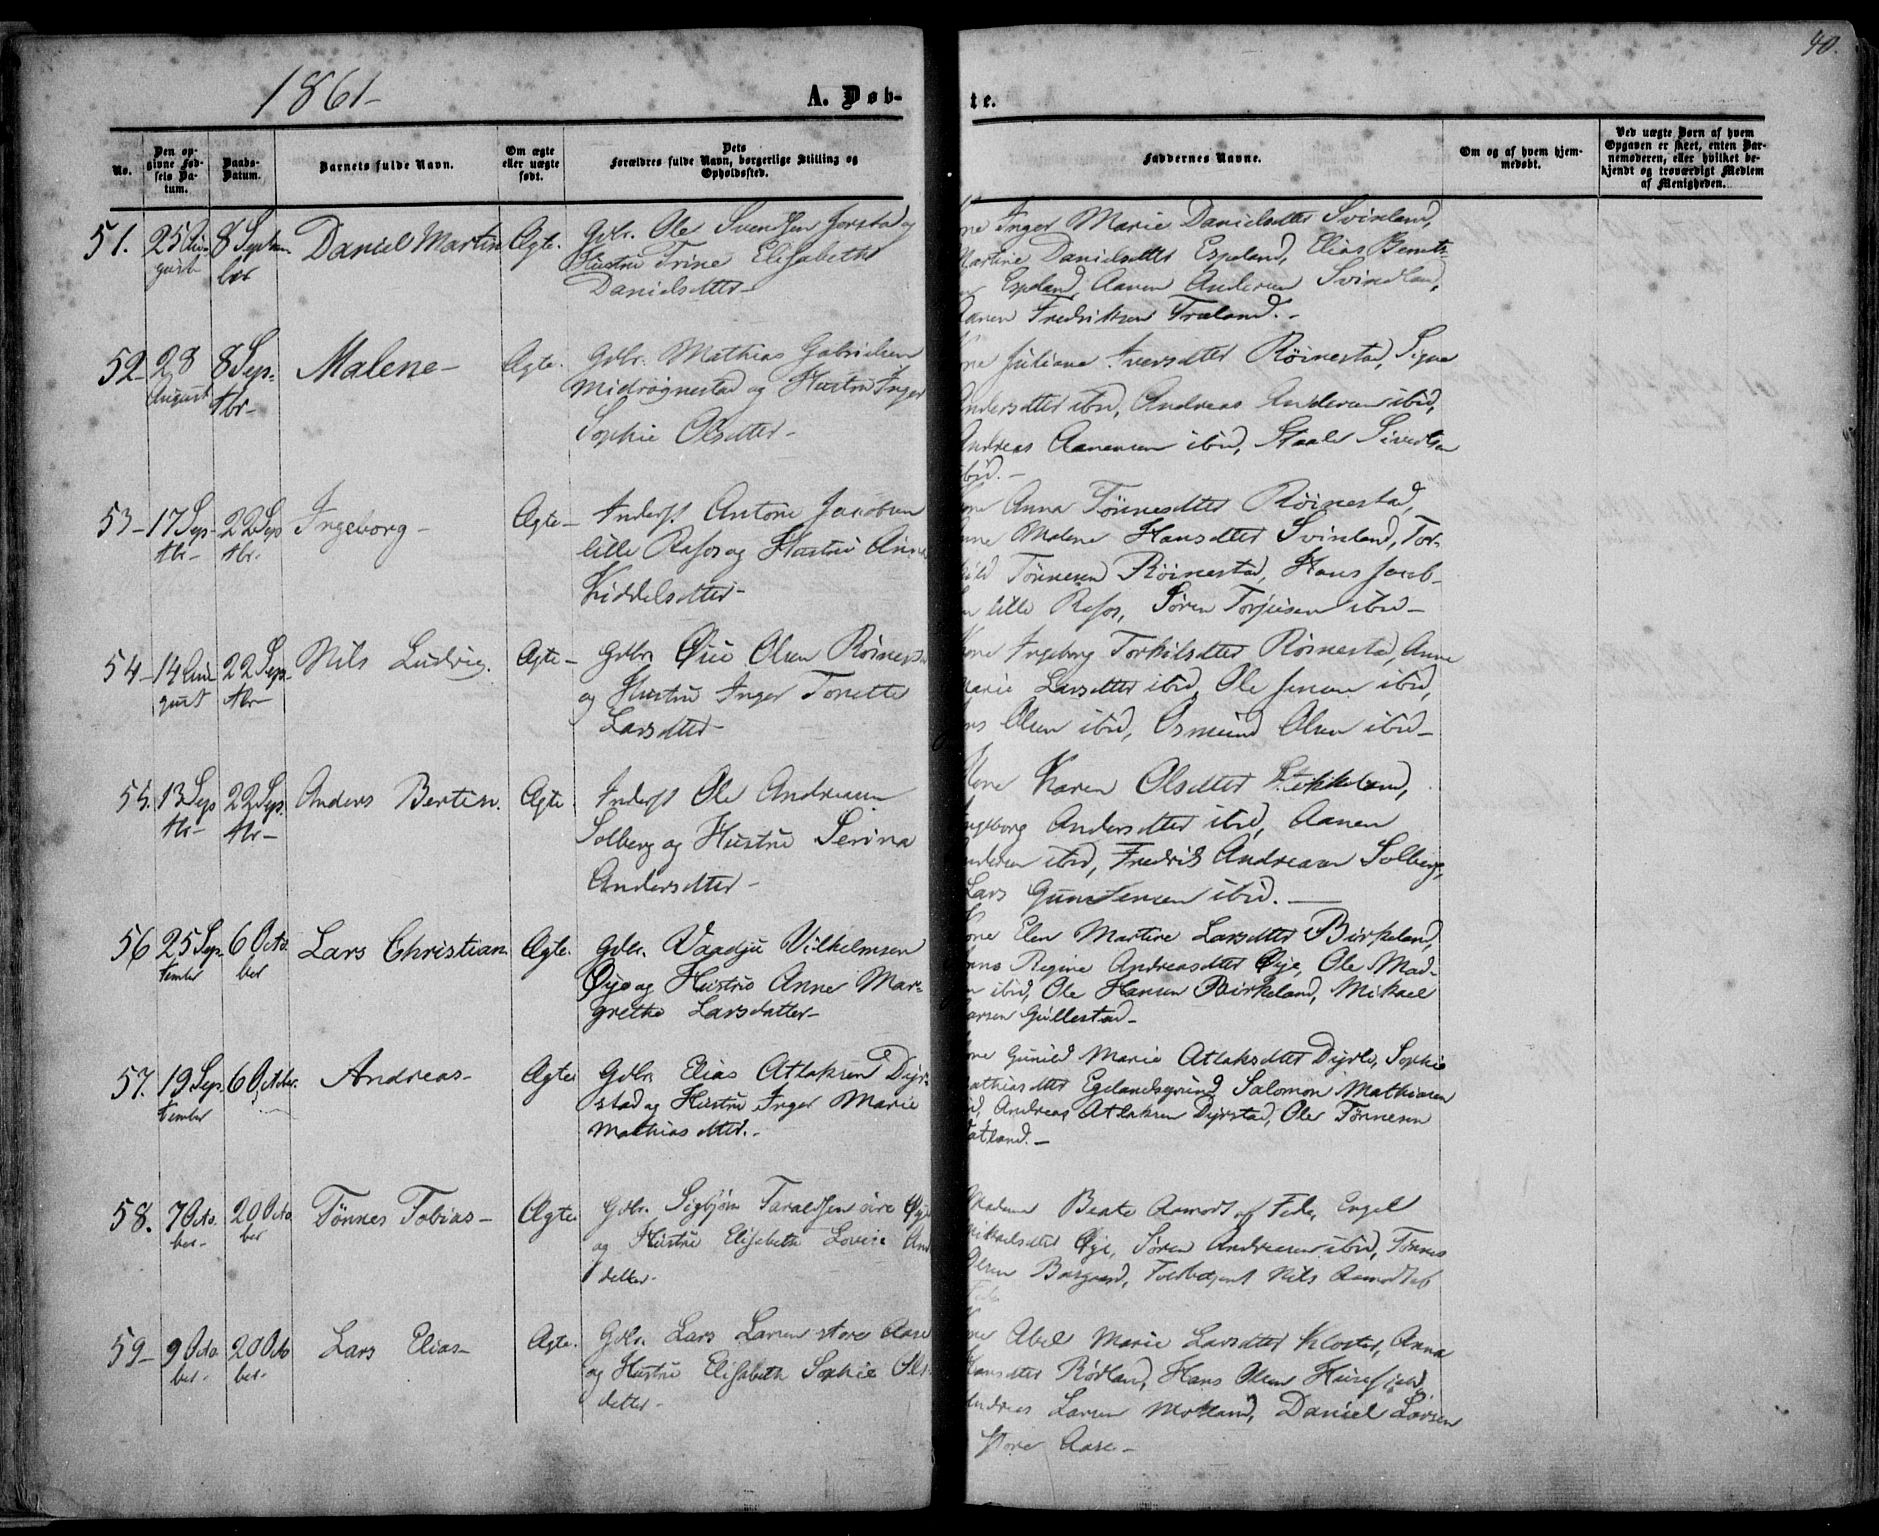 1861-
A. Døb-
te.
40.
No.
Den op-
givne Fød-
sels Da-
tum.
Daabs-
Datum.
Barnets fulde Navn.
Om ægte
eller uægte
født.
Dets
Forældres fulde Navn, borgerlige Stilling og
Opholdssted.
Faddernes Navne.
Om og af hvem hjem-
medøbt.
Ved uægte Børn af hvem
Opgaven er skeet, enten Bar-
nemoderen, eller hvilket be-
kjendt og troværdigt Medlem
af Menigheden.
51. 25 Au- 8 Septem- Daniel Martin Ægte. Gdbr. Ole Svendsen Jerstad og
gust ber Hustru Trine Elisabeth
Danielsdtter-
Inger Marie Danielsdtter Svinland,
Martine Danielsdtter Espeland, Elias Bernts-
Espeland, Aanen Andersen Svindland,
Aanen Fredriksen Træland.-
52- 28 8 Sep- Malene- Ægte. Gdbr. Mathias Gabrielsen
August tbr- Midrøgnestad og Hustru Inger
Sophie Olsdtter-
Juliane Iversdtter Röinestad, Signe
Andersdtter ibid, Andreas Andersen ibid,
Andreas Aanensen ibid, Staale Sivertsen
ibid.-
53- 17 Sep- 22 Sep Ingeborg- Ægte- Inderst Antoni Jacobsen
tbr- tbr- lille Rafos og Hustru Anne
Kiddelsdtter-
Anna Tönnesdtter Röinestad,
Malene Hansdtter Svinland, Tor-
kild Tönnesen Röinestad, Hans Jacob-
sen lille Rafos, Sören Torjusen ibid-
54- 14 Au- 22 Sep- Nils Ludvig. Ægte- Gdbr. Olsen Röinest
gust tbr- og Hustru Inger Tonette
Larsdtter-
Kone Ingeborg Torkilsdtter Röinestad, Anne
Marie Larsdtter ibid, Ole Jensen ibid,
Olsen ibid, Osmund Olsen ibid-
55. 13 Sep 22 Sep- Anders Bertin. Ægte. Inderst Ole Andreasen
tbr- tbr- Solberg og Hustru Serina
Andersdtter-
Kone Karen Olsdtter Stokkeland,
Ingeborg Andersdtter ibid, Aanen
Andersen ibid, Fredrik Andreasen Solberg,
Lars Gundersen ibid.-
56 25 Sep- 6 Octo- Lars Christian Ægte. Gdbr. Vaadju Vilhelmsen
tember ber Øye og Hustru Anne Mar-
grethe Larsdatter-
Kone Elen Martine Larsdtter Birkeland,
Regine Andreasdtter Øye, Ole Mad-
ibid, Ole Hansen Birkeland, Mikael
Larsen Gullestad-
57. 19 Sep- 6 Octbr. Andreas- Ægte Gdbr. Elias Atlaksen Dyr-
tember stad og Hustru Inger Marie
Mathiasdtter.-
Gunild Marie Atlaksdtter Dyrli, Sophie
Mathiasdtter Egelandsgrund, Salomon Mathiasen
Andreas Atlaksen Dyrstad, Ole Tönnesen
-
58. 7 Octo- 20 Octo Tönnes Tobias- Ægte Gdbr. Sigbjörn Taraldsen övre Øye
ber- ber og Hustru Elisabeth Lovise
detter-
Madam Beate Aamodt af Fede, Engel
Mikkelsdtter Øye, Sören Andreasen ibid, Tönnes
Olsen Bargaard, Toldbetjent Nils Aamodt af
Fede
59- 9 Octo 20 Octo Lars Elias- Ægte. Gdbr. Lars Larsen store Aase
ber- ber- og Hustru Elisabeth Sophie Ols-
detter-
Abel Marie Larsdtter Kloster, Anna
Hansdtter Rödland, Hans Olsen
Andreas Larsen Mokland, Daniel Larsen
store Aase-